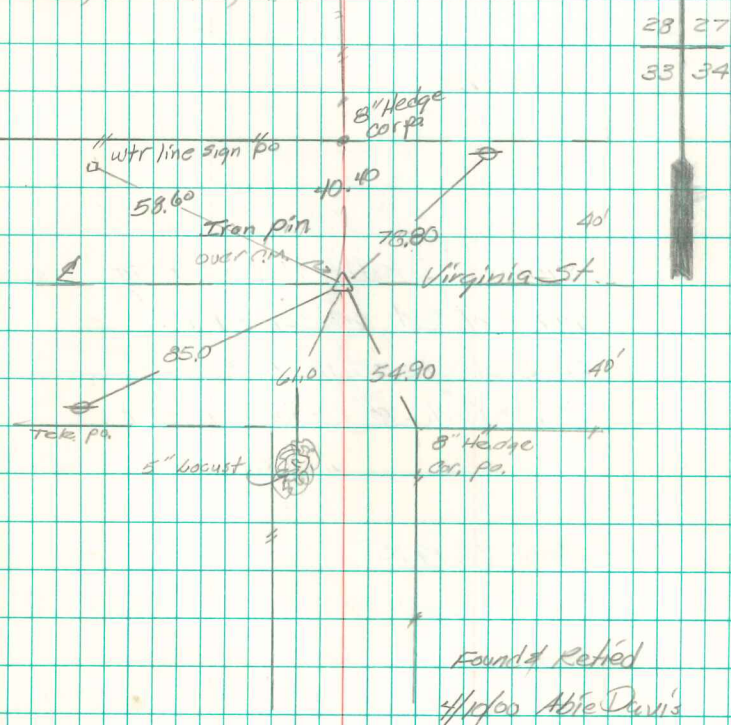 28 27
33 34
8" Hedge
Cor pa
1" wtr line sign po
40.40
58.60
Iron pin
over
78.80
40'
℄
Virginia St.
85.0
61.0
54.90
40'
Tele. po.
8" Hedge
Cor. po.
5" Locust
Found & Retied
4/10/00 Abie Davis